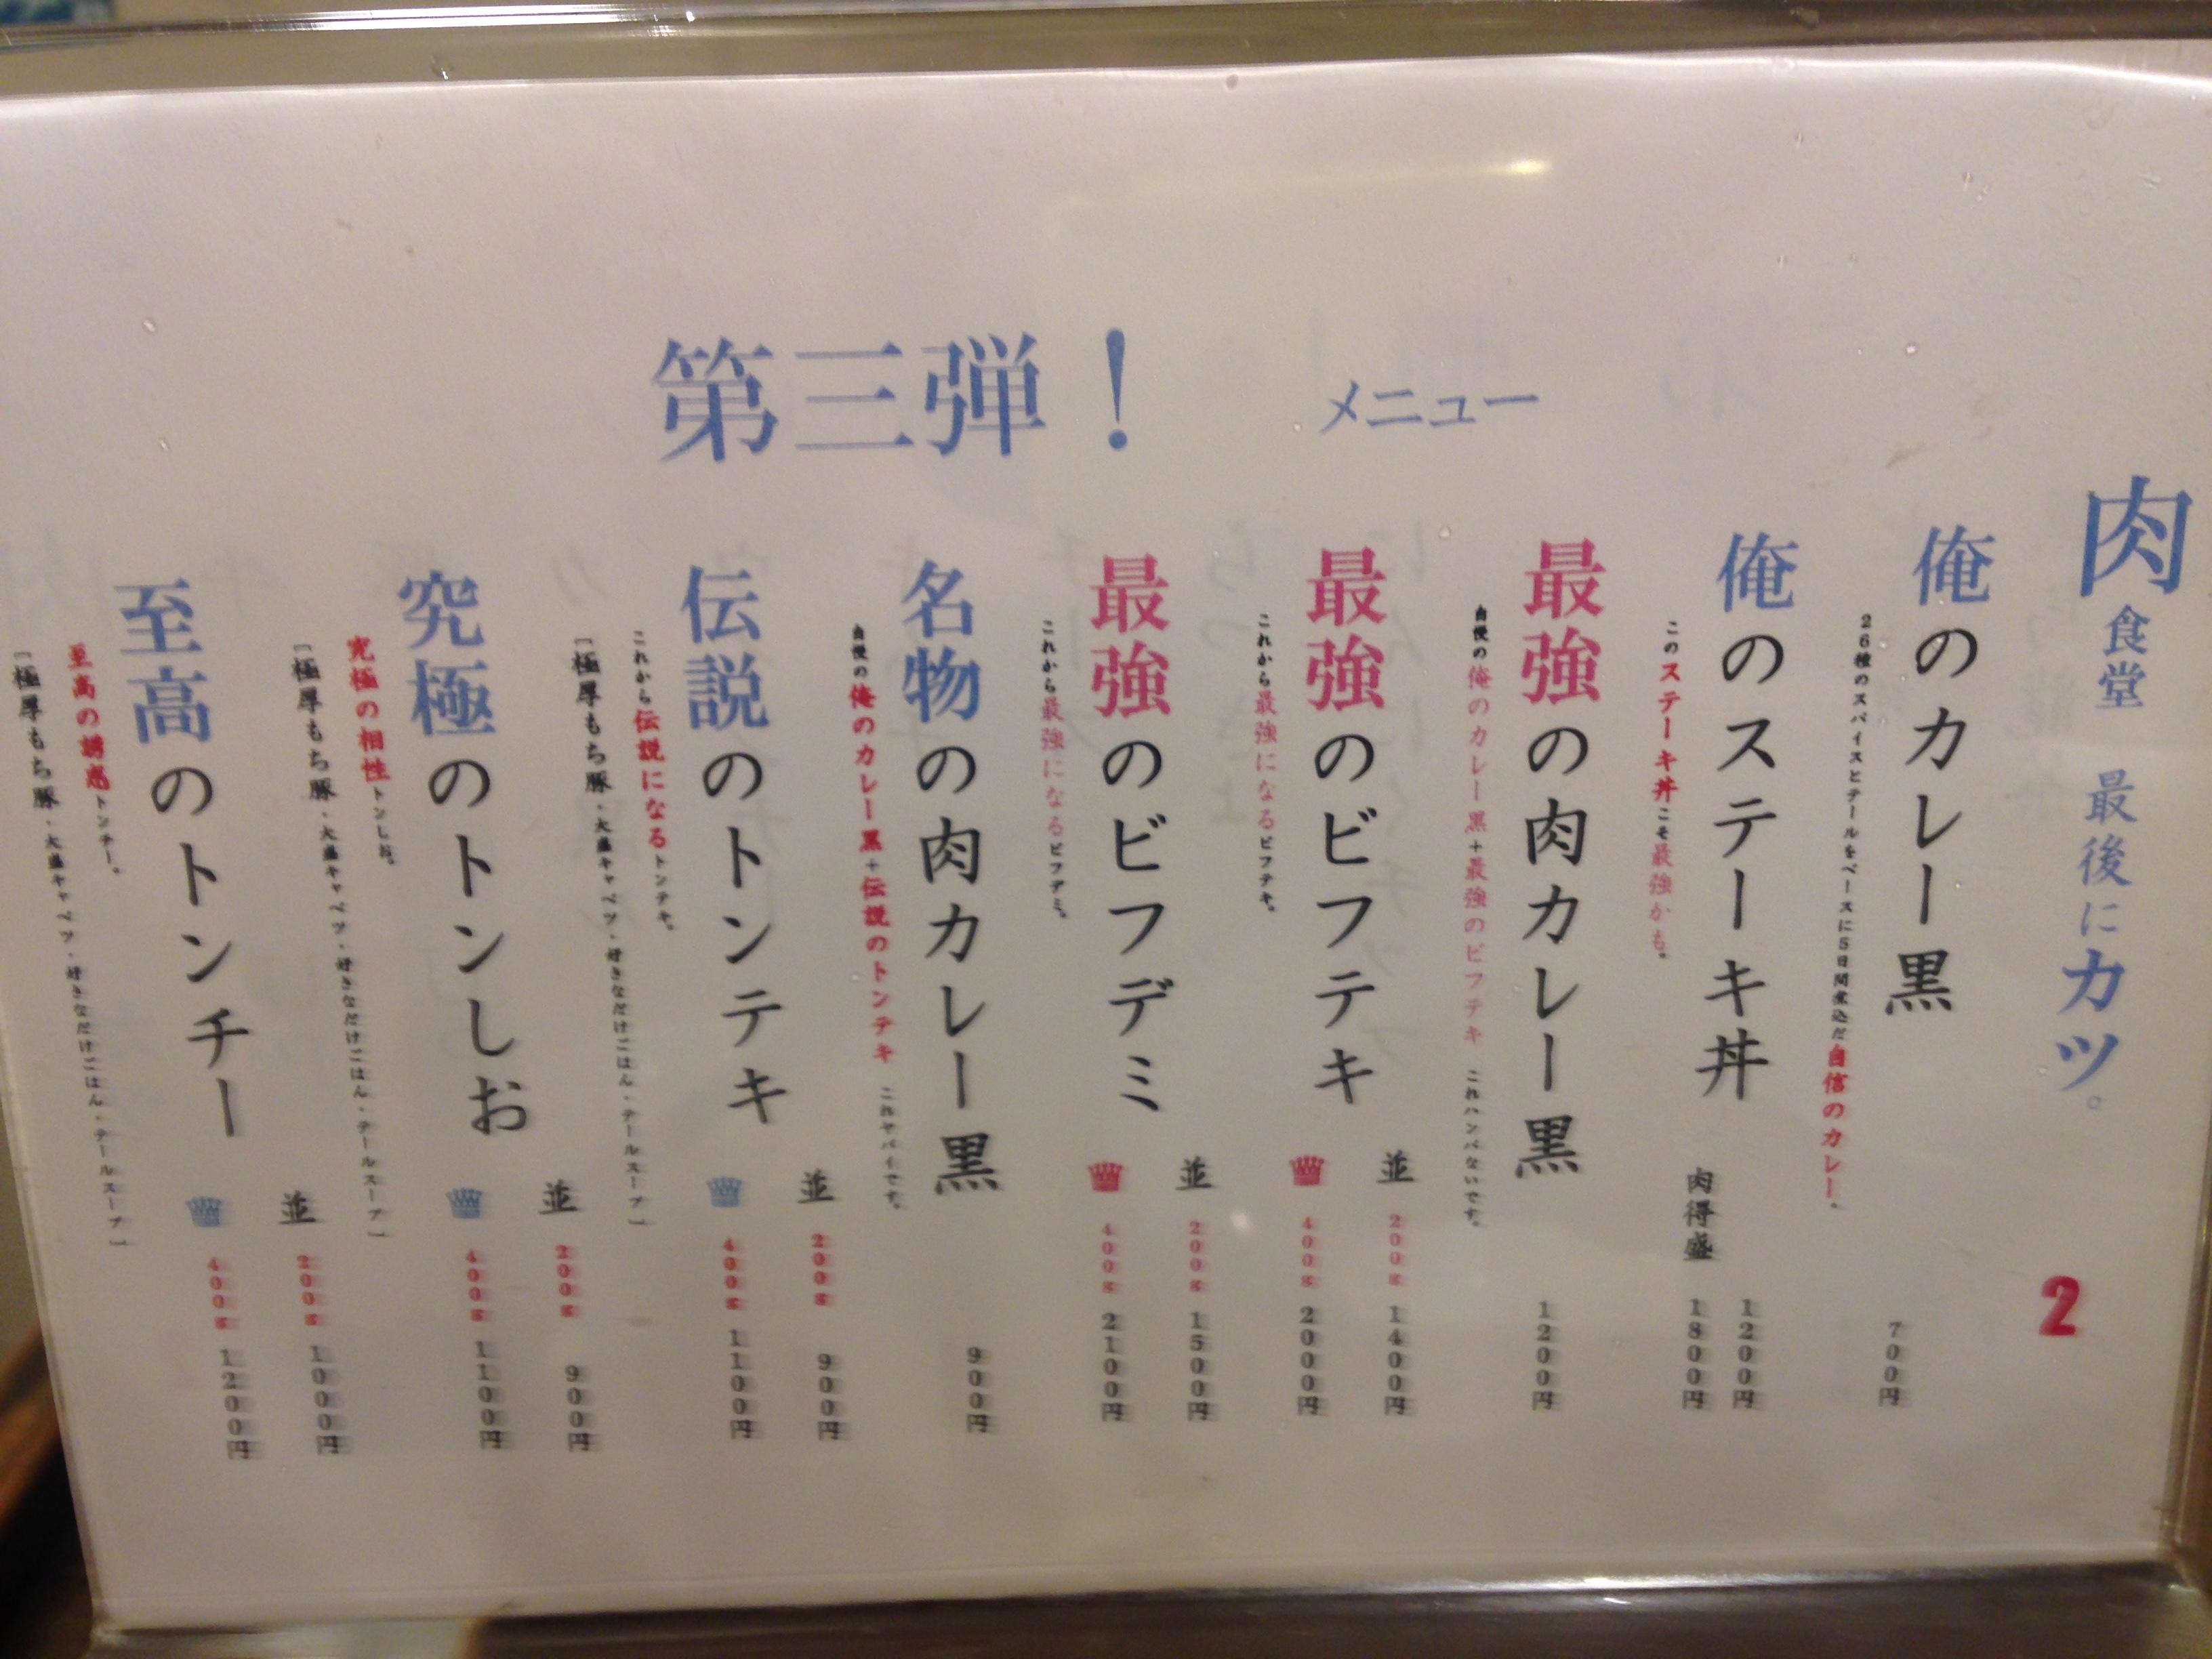 第三弾！ メニュー
肉食堂 最後にカツ。 2
俺のカレー黒 700円
26種のスパイスとテールをベースに5日間煮込だ自信のカレー。
俺のステーキ丼 1200円
肉得盛 1800円
このステーキ丼こそ最強かも。
最強の肉カレー黒 1200円
自慢の俺のカレー黒+最強のビフテキ これハンパないです。
最強のビフテキ
並 200g 1400円
400g 2000円
これから最強になるビフテキ。
最強のビフデミ
並 200g 1500円
400g 2100円
これから最強になるビフデミ。
名物の肉カレー黒 900円
自慢の俺のカレー黒+伝説のトンテキ これヤバイです。
伝説のトンテキ
並 200g 900円
400g 1100円
これから伝説になるトンテキ。
[極厚もち豚・大盛キャベツ・好きなだけごはん・テールスープ]
究極のトンしお
並 200g 900円
400g 1100円
究極の相性トンしお。
[極厚もち豚・大盛キャベツ・好きなだけごはん・テールスープ]
至高のトンチー
並 200g 1000円
400g 1200円
至高の誘惑トンチー。
[極厚もち豚・大盛キャベツ・好きなだけごはん・テールスープ]